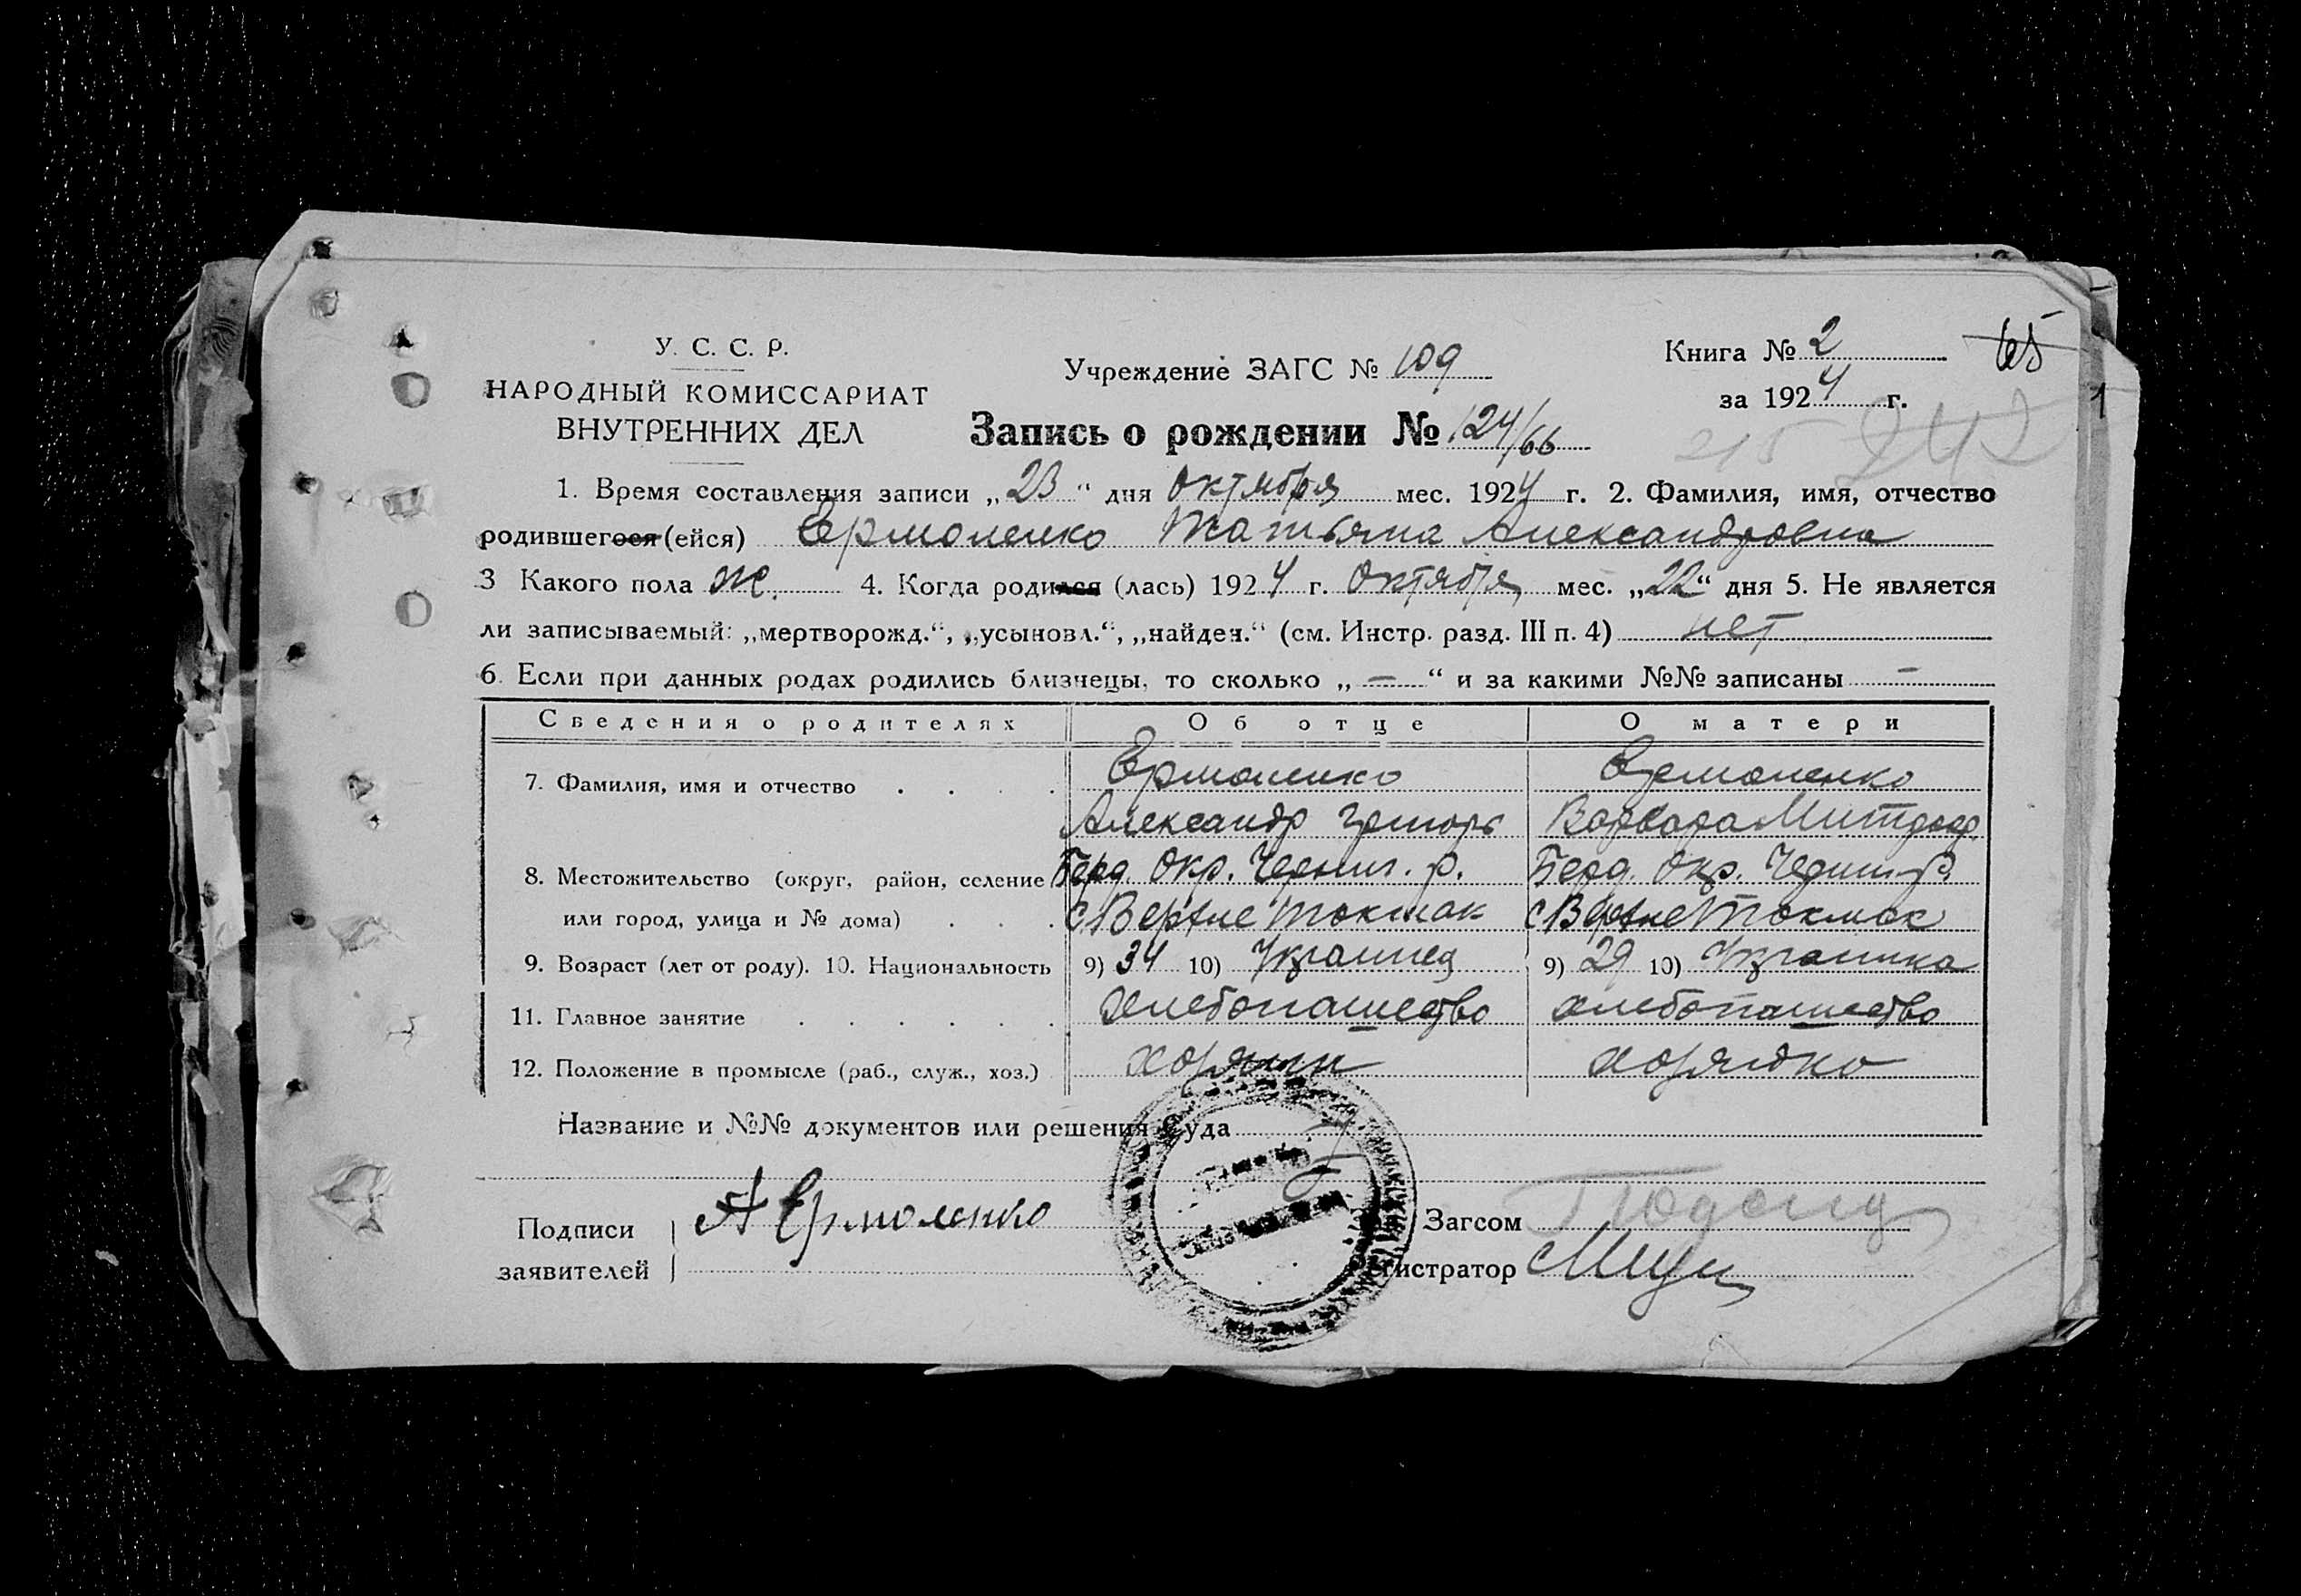 У. С. С. Р.
НАРОДНЫЙ КОМИССАРИАТ
ВНУТРЕННИХ ДЕЛ
Учреждение ЗАГС № 109
Книга № 2
65
за 1924 г.
1
Запись о рождении № 124/66
215 242
1. Время составления записи „23“ дня Октября мес. 1924 г. 2. Фамилия, имя, отчество
родившегося (ейся) Ермоленко Татьяна Александровна
3 Какого пола ж. 4. Когда родился (лась) 1924 г. Октября мес. „22“ дня 5. Не является
ли записываемый: „мертворожд.“, „усыновл.“, „найден.“ (см. Инстр. разд. III п. 4) нет
6. Если при данных родах родились близнецы, то сколько „ — “ и за какими №№ записаны —
Сведения о родителях Об отце О матери
7. Фамилия, имя и отчество . . . . Ермоленко Ермоленко
Александр Григорь Варвара
8. Местожительство (округ, район, селение Берд. Окр. Черниг. р. Берд. Окр. Черниг. р.
или город, улица и № дома) . . . с Верхне Токмак с Верхне Токмак
9. Возраст (лет от роду). 10. Национальность 9) 34 10) Украинец 9) 29 10) Украинка
11. Главное занятие . . . . . . хлебопашество хлебопашество
12. Положение в промысле (раб., служ., хоз.) хозяин хозяйка
Название и №№ документов или решения Суда
Подписи А Ермоленко Загсом
заявителей гистратор